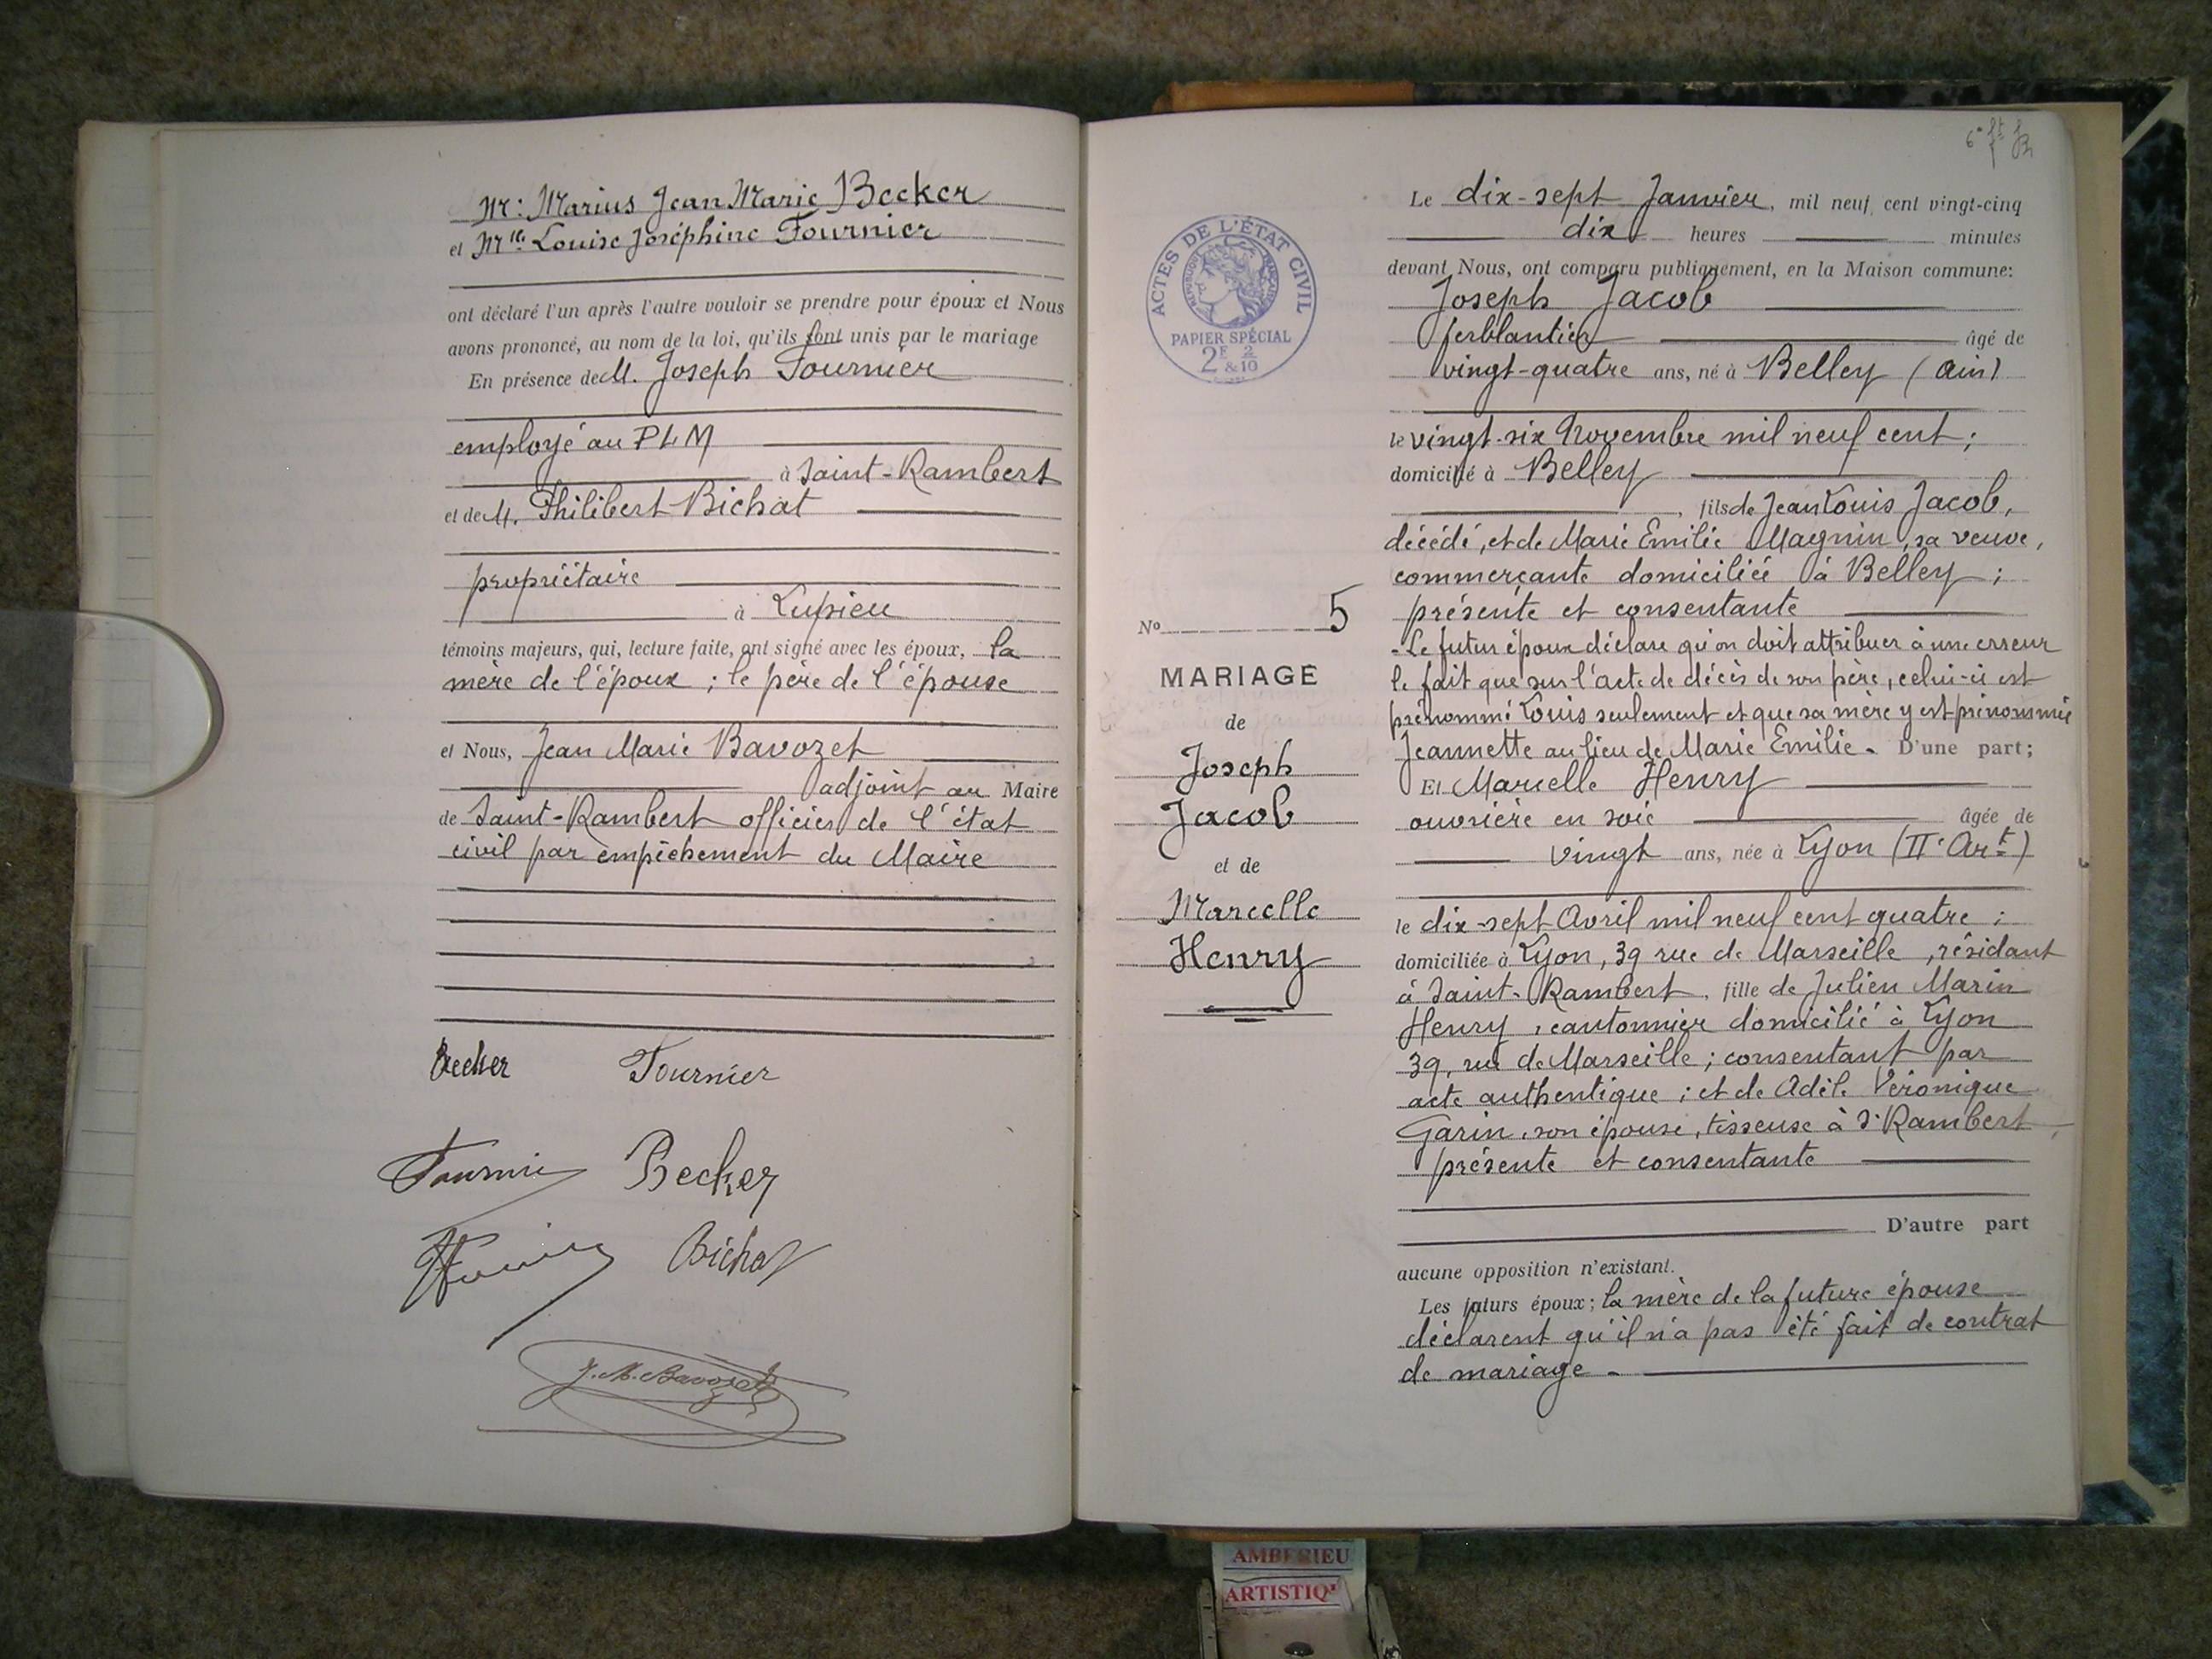 Mr: Marius Jean Marie Becker
et Mlle Louise Joséphine Fournier
ont déclaré l'un après l'autre vouloir se prendre pour époux et Nous
avons prononcé, au nom de la loi, qu'ils sont unis par le mariage
En présence de M. Joseph Fournier
employé au PLM
à Saint-Rambert
et de M. Philibert Bichat
propriétaire
à Lupieu
témoins majeurs, qui, lecture faite, ont signé avec les époux, la
mère de l'époux ; le père de l'épouse
et Nous, Jean Marie Bavozet
adjoint au Maire
de Saint-Rambert officier de l'état
civil par empêchement du Maire
Becker Fournier
Becker
Bichat
J. M. Bavozet
ACTES DE L'ÉTAT CIVIL
RÉPUBLIQUE FRANÇAISE
PAPIER SPÉCIAL
2F 2/10
& 10
No 5
MARIAGE
de
Joseph
Jacob
et de
Marcelle
Henry
Le dix-sept Janvier, mil neuf cent vingt-cinq
dix heures minutes
devant Nous, ont comparu publiquement, en la Maison commune:
Joseph Jacob
ferblantier âgé de
vingt-quatre ans, né à Belley (Ain)
le vingt-six Novembre mil neuf cent ;
domicilié à Belley
, fils de Jean Louis Jacob,
décédé, et de Marie Emilie Magnin, sa veuve,
commerçante domiciliée à Belley ;
présente et consentante
- Le futur époux déclare qu'on doit attribuer à une erreur
le fait que sur l'acte de décès de son père, celui-ci est
prénommé Louis seulement et que sa mère y est prénommée
Jeannette au lieu de Marie Emilie. D'une part;
Et Marcelle Henry
ouvrière en soie âgée de
vingt ans, née à Lyon (IIe Art)
le dix-sept Avril mil neuf cent quatre ;
domiciliée à Lyon, 39 rue de Marseille, résidant
à Saint-Rambert, fille de Julien Marin
Henry, cantonnier domicilié à Lyon
39, rue de Marseille ; consentant par
acte authentique ; et de Adèle Véronique
Garin, son épouse, tisseuse à St Rambert,
présente et consentante
D'autre part
aucune opposition n'existant.
Les futurs époux; la mère de la future épouse
déclarent qu'il n'a pas été fait de contrat
de mariage.
AMBERIEU
ARTISTIQ